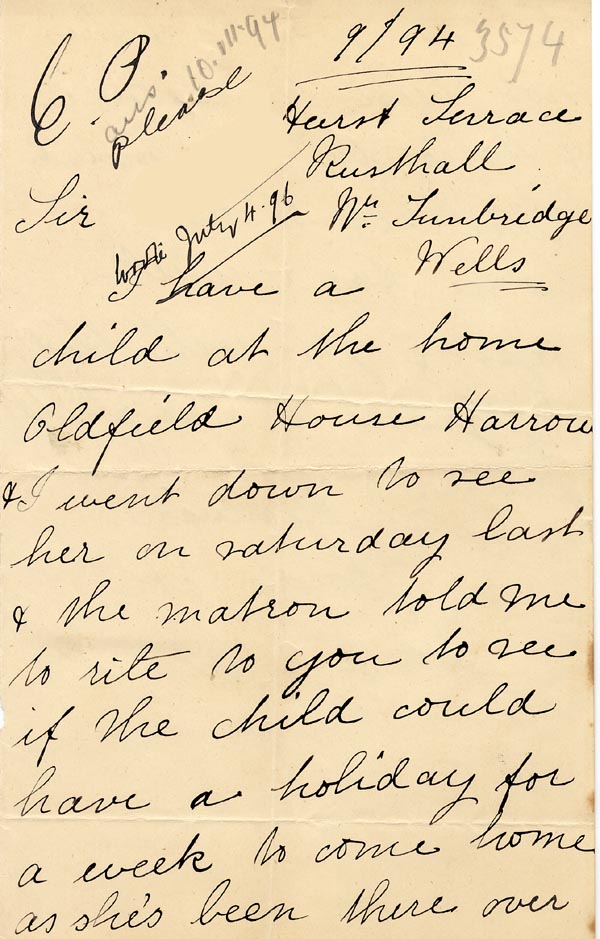 E. P. 9/94 3574
ans. 10.VII.94
please
Hurst Terrace
Rusthall
Sir Nr Tunbridge
wrote July 4.96
Wells
I have a
child at the home
Oldfield House Harrow
& I went down to see
her on saturday last
& the matron told me
to rite to you to see
if the child could
have a holiday for
a week to come home
as she's been there over